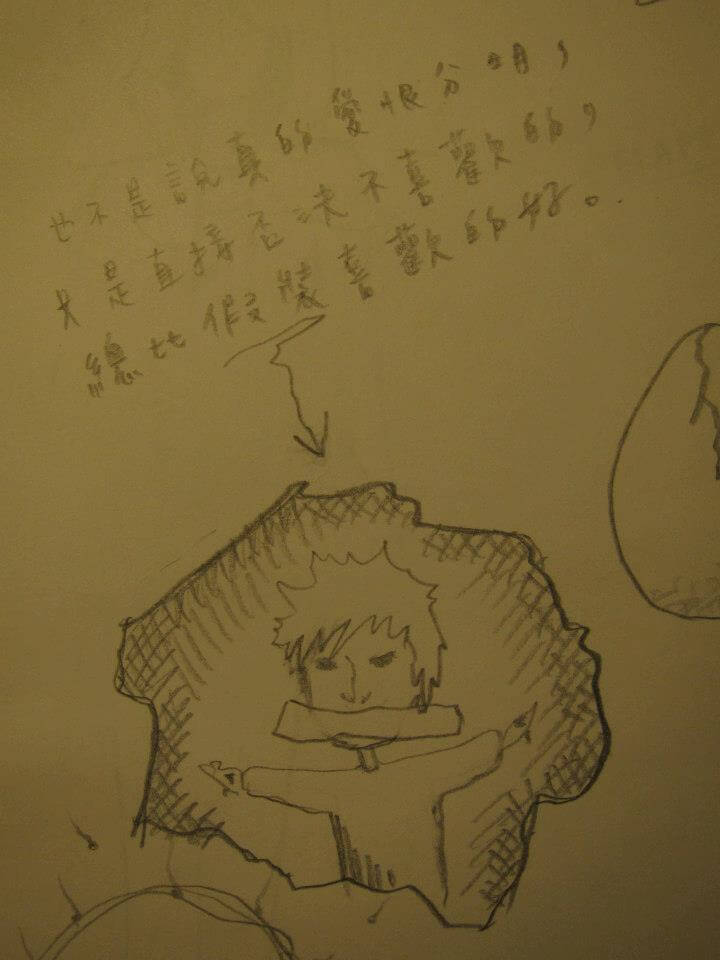 也不是說真的愛恨分明，
只是直接否決不喜歡的，
總比假裝喜歡的好。